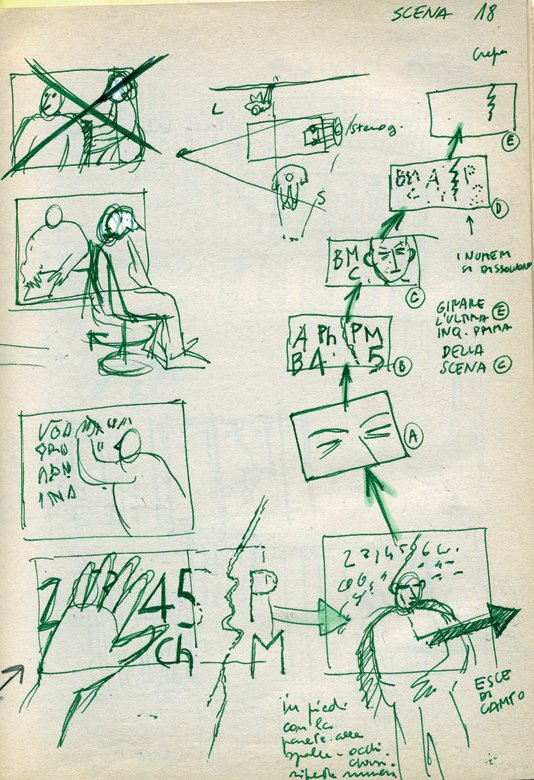 SCENA 18
Crepa
L
/stenog.
S
E
BM A P
D
I NUMERI
SI DISSOLVONO
BM
C
C
GIRARE
L'ULTIMA E
INQ. PRIMA
DELLA
SCENA C
A Ph PM
B4 5
B
A
2 45
Ch
P
M
ESCE
DI
CAMPO
in piedi
con la
parete alle
spalle - occhi
chiusi
ripete numeri